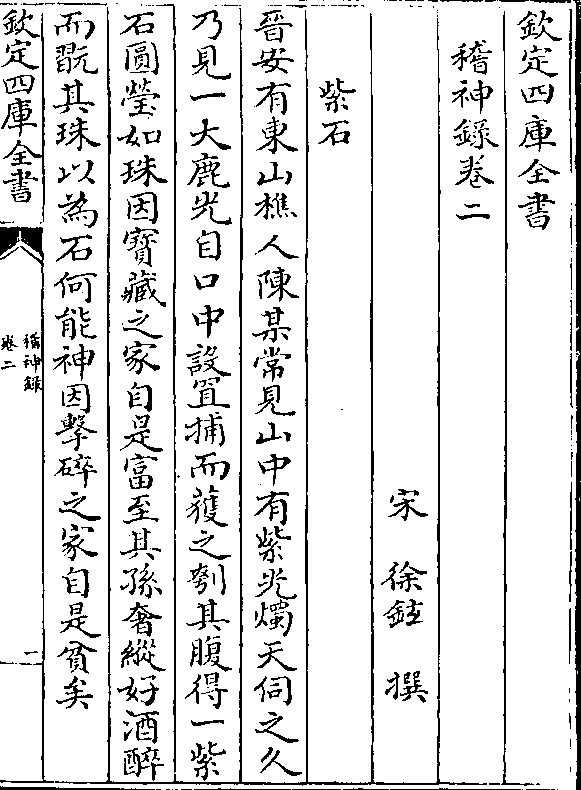 欽定四庫全書
稽神錄卷二
宋 徐鉉 撰
紫石
晉安有東山樵人陳某常見山中有紫光燭天伺之久
乃見一大鹿光自口中設罝捕而獲之刳其腹得一紫
石圓瑩如珠因寶藏之家自是富至其孫奢縱好酒醉
而翫其珠以為石何能神因擊碎之家自是貧矣
欽定四庫全書
稽神錄
卷二
一